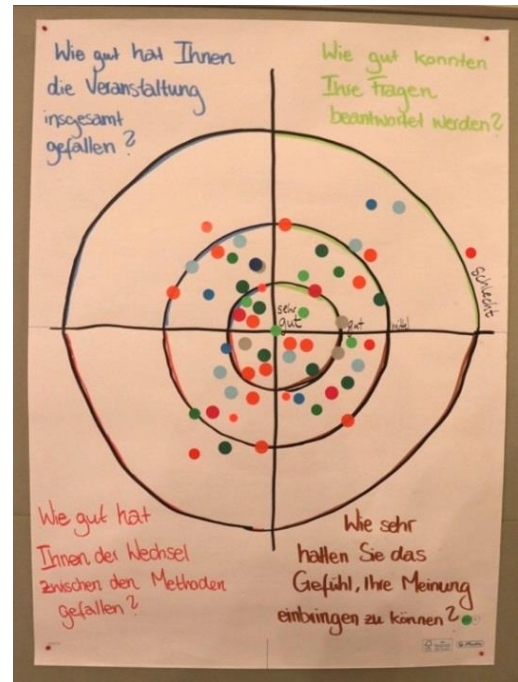 Wie gut hat Ihnen
die Veranstaltung
insgesamt
gefallen?
Wie gut konnten
Ihre Fragen
beantwortet werden?
schlecht
sehr
gut
gut
mittel
Wie gut hat
Ihnen der Wechsel
zwischen den Methoden
gefallen?
Wie sehr
hatten Sie das
Gefühl, Ihre Meinung
einbringen zu können?